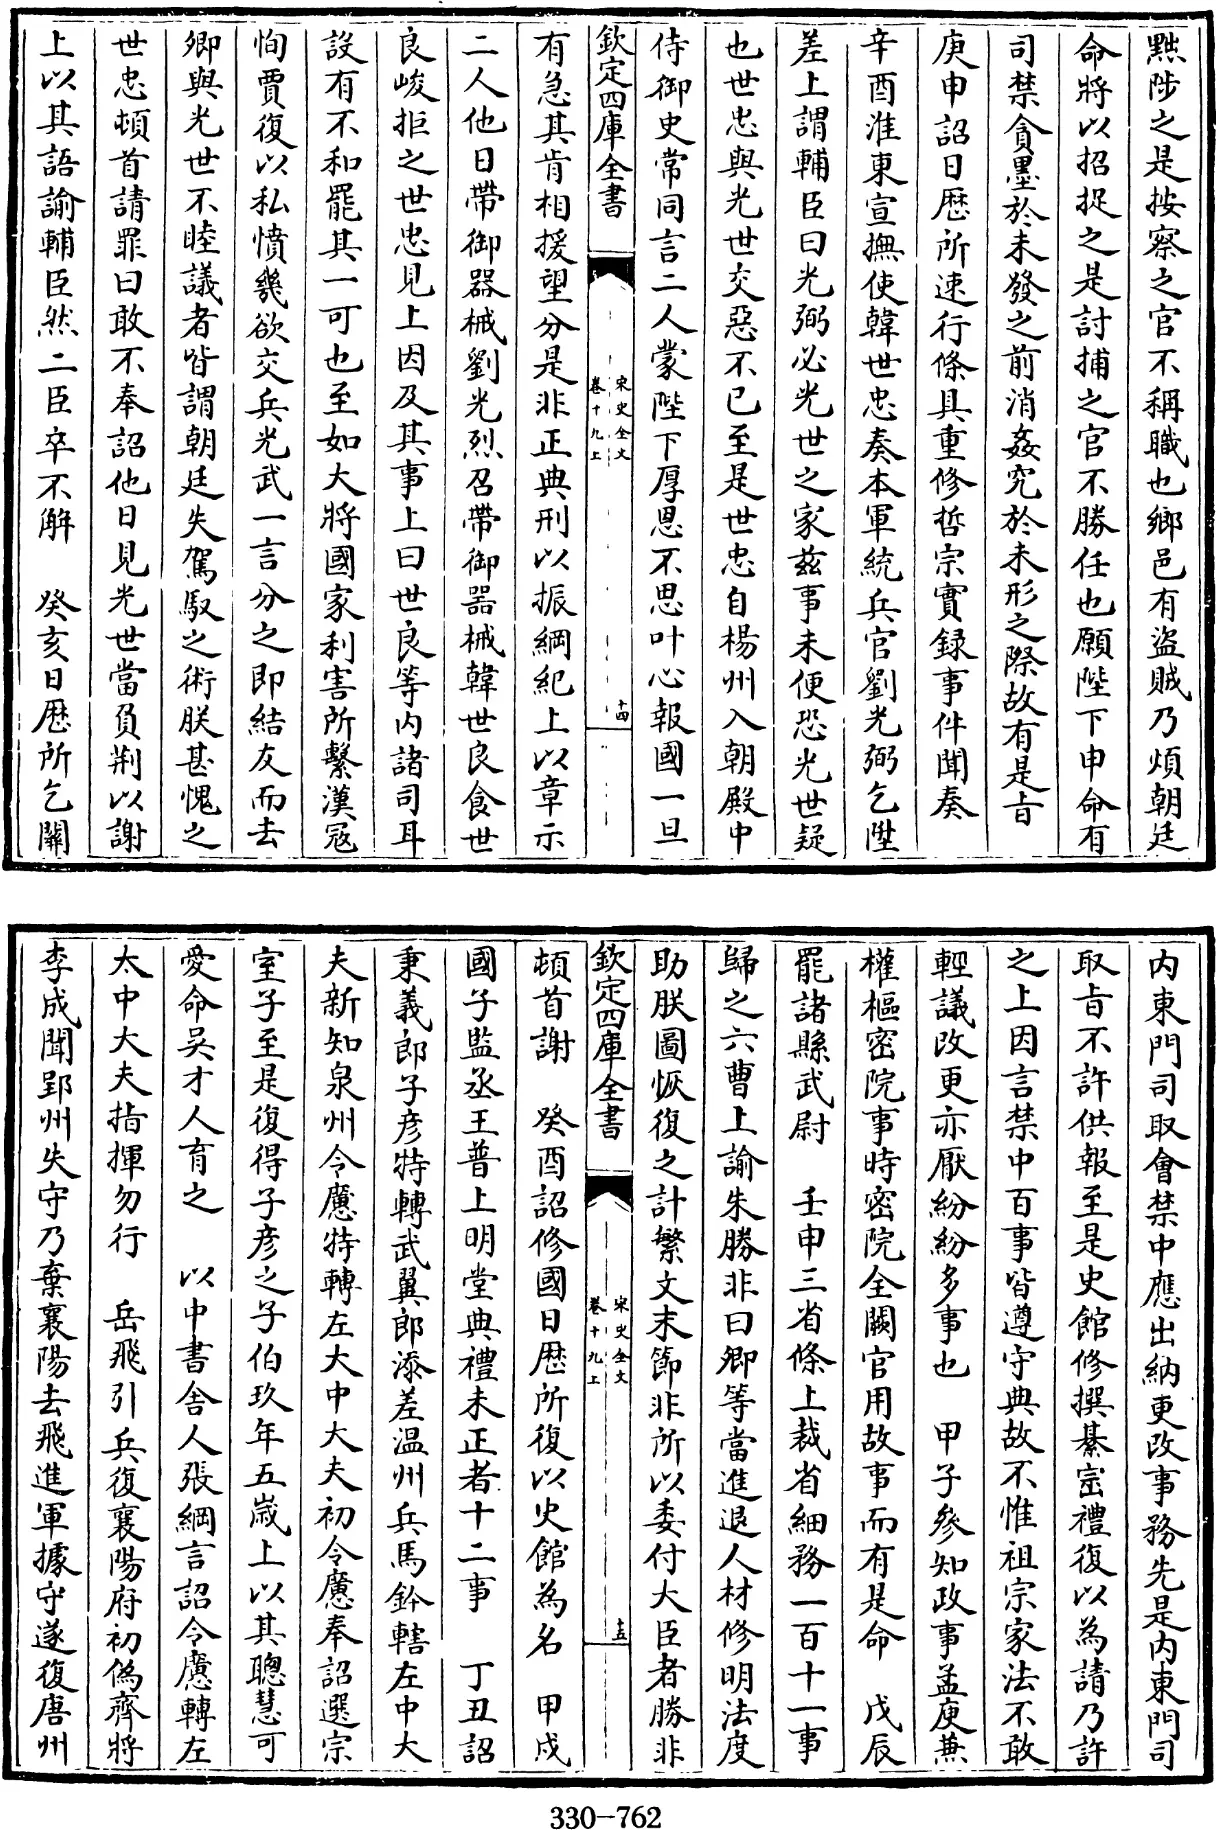 黜陟之是按察之官不稱職也鄉邑有盜賊乃煩朝廷
命將以招捉之是討捕之官不勝任也願陛下申命有
司禁貪墨於未發之前消姦宄於未形之際故有是㫖
庚申詔日厯所速行條具重修哲宗實録事件聞奏
辛酉淮東宣撫使韓世忠奏本軍統兵官劉光弼乞陞
差上謂輔臣曰光弼必光世之家兹事未便恐光世疑
也世忠與光世交惡不已至是世忠自楊州入朝殿中
侍御史常同言二人蒙陛下厚恩不思叶心報國一旦
欽定四庫全書
宋史全文
卷十九上
十四
有急其肯相援望分是非正典刑以振綱紀上以章示
二人他日帶御器械劉光烈召帶御器械韓世良食世
良峻拒之世忠見上因及其事上曰世良等内諸司耳
設有不和罷其一可也至如大將國家利害所繫漢冦
恂賈復以私憤㡬欲交兵光武一言分之即結友而去
卿與光世不睦議者皆謂朝廷失駕馭之術朕甚愧之
世忠頓首請罪曰敢不奉詔他日見光世當負荆以謝
上以其語諭輔臣然二臣卒不觧　癸亥日厯所乞關
内東門司取㑹禁中應出納更改事務先是内東門司
取㫖不許供報至是史館修撰綦崈禮復以為請乃許
之上因言禁中百事皆遵守典故不惟祖宗家法不敢
輕議改更亦厭紛紛多事也　甲子參知政事孟庾兼
權樞密院事時密院全闕官用故事而有是命　戊辰
罷諸縣武尉　壬申三省條上裁省細務一百十一事
歸之六曹上諭朱勝非曰卿等當進退人材修明法度
助朕圖恢復之計繁文末節非所以委付大臣者勝非
欽定四庫全書
宋史全文
卷十九上
十五
頓首謝　癸酉詔修國日厯所復以史館為名　甲戌
國子監丞王普上明堂典禮未正者十二事　丁丑詔
秉義郎子彦特轉武翼郎添差温州兵馬鈐轄左中大
夫新知泉州令懬特轉左大中大夫初令懬奉詔選宗
室子至是復得子彦之子伯玖年五嵗上以其聰慧可
愛命吳才人育之　以中書舍人張綱言詔令懬轉左
太中大夫指揮勿行　岳飛引兵復襄陽府初偽齊將
李成聞郢州失守乃棄襄陽去飛進軍據守遂復唐州
330-762